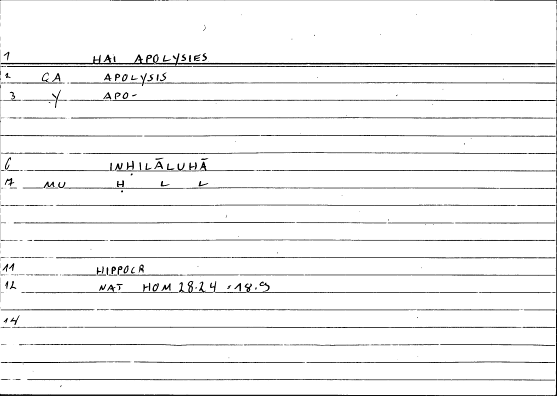 1 HAI APOLYSIES
2 GA APOLYSIS
3 Y APO-
6 INḤILĀLUHĀ
7 MU Ḥ L L
11 HIPPOCR
12 NAT HOM 28.24 = 18.9
14